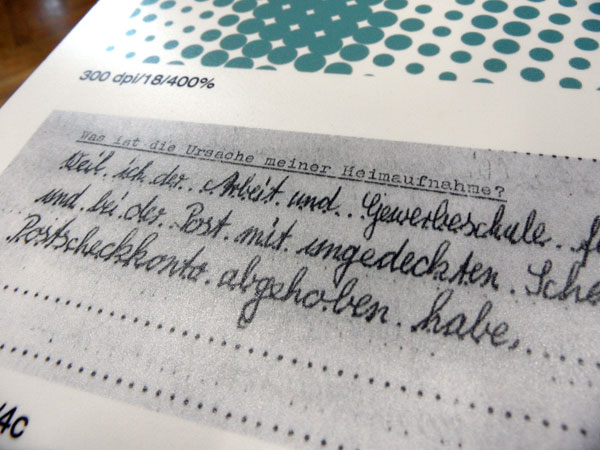 300 dpi/18/400%
Was ist die Ursache meiner Heimaufnahme?
Weil ich der Arbeit und Gewerbeschule
und bei der Post mit ungedeckten
Postscheckkonto abgehoben habe.
4c